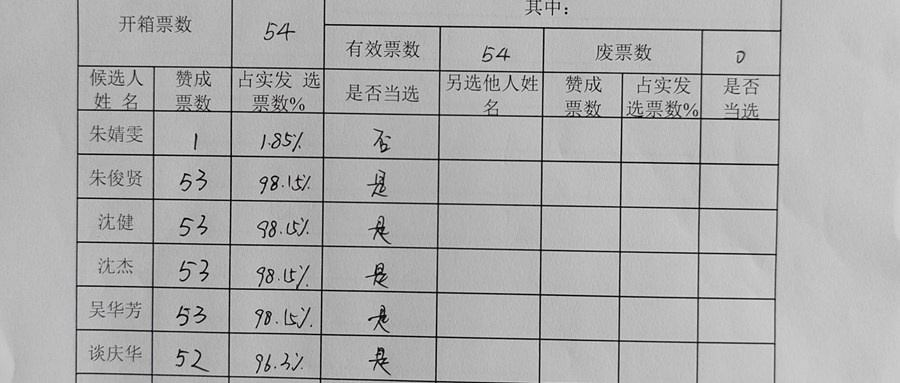 其中：
开箱票数 54
有效票数 54 废票数 0
候选人姓 名 赞成票数 占实发 选票数% 是否当选 另选他人姓名 赞成票数 占实发选票数% 是否当选
朱婧雯 1 1.85% 否
朱俊贤 53 98.15% 是
沈健 53 98.15% 是
沈杰 53 98.15% 是
吴华芳 53 98.15% 是
谈庆华 52 96.3% 是